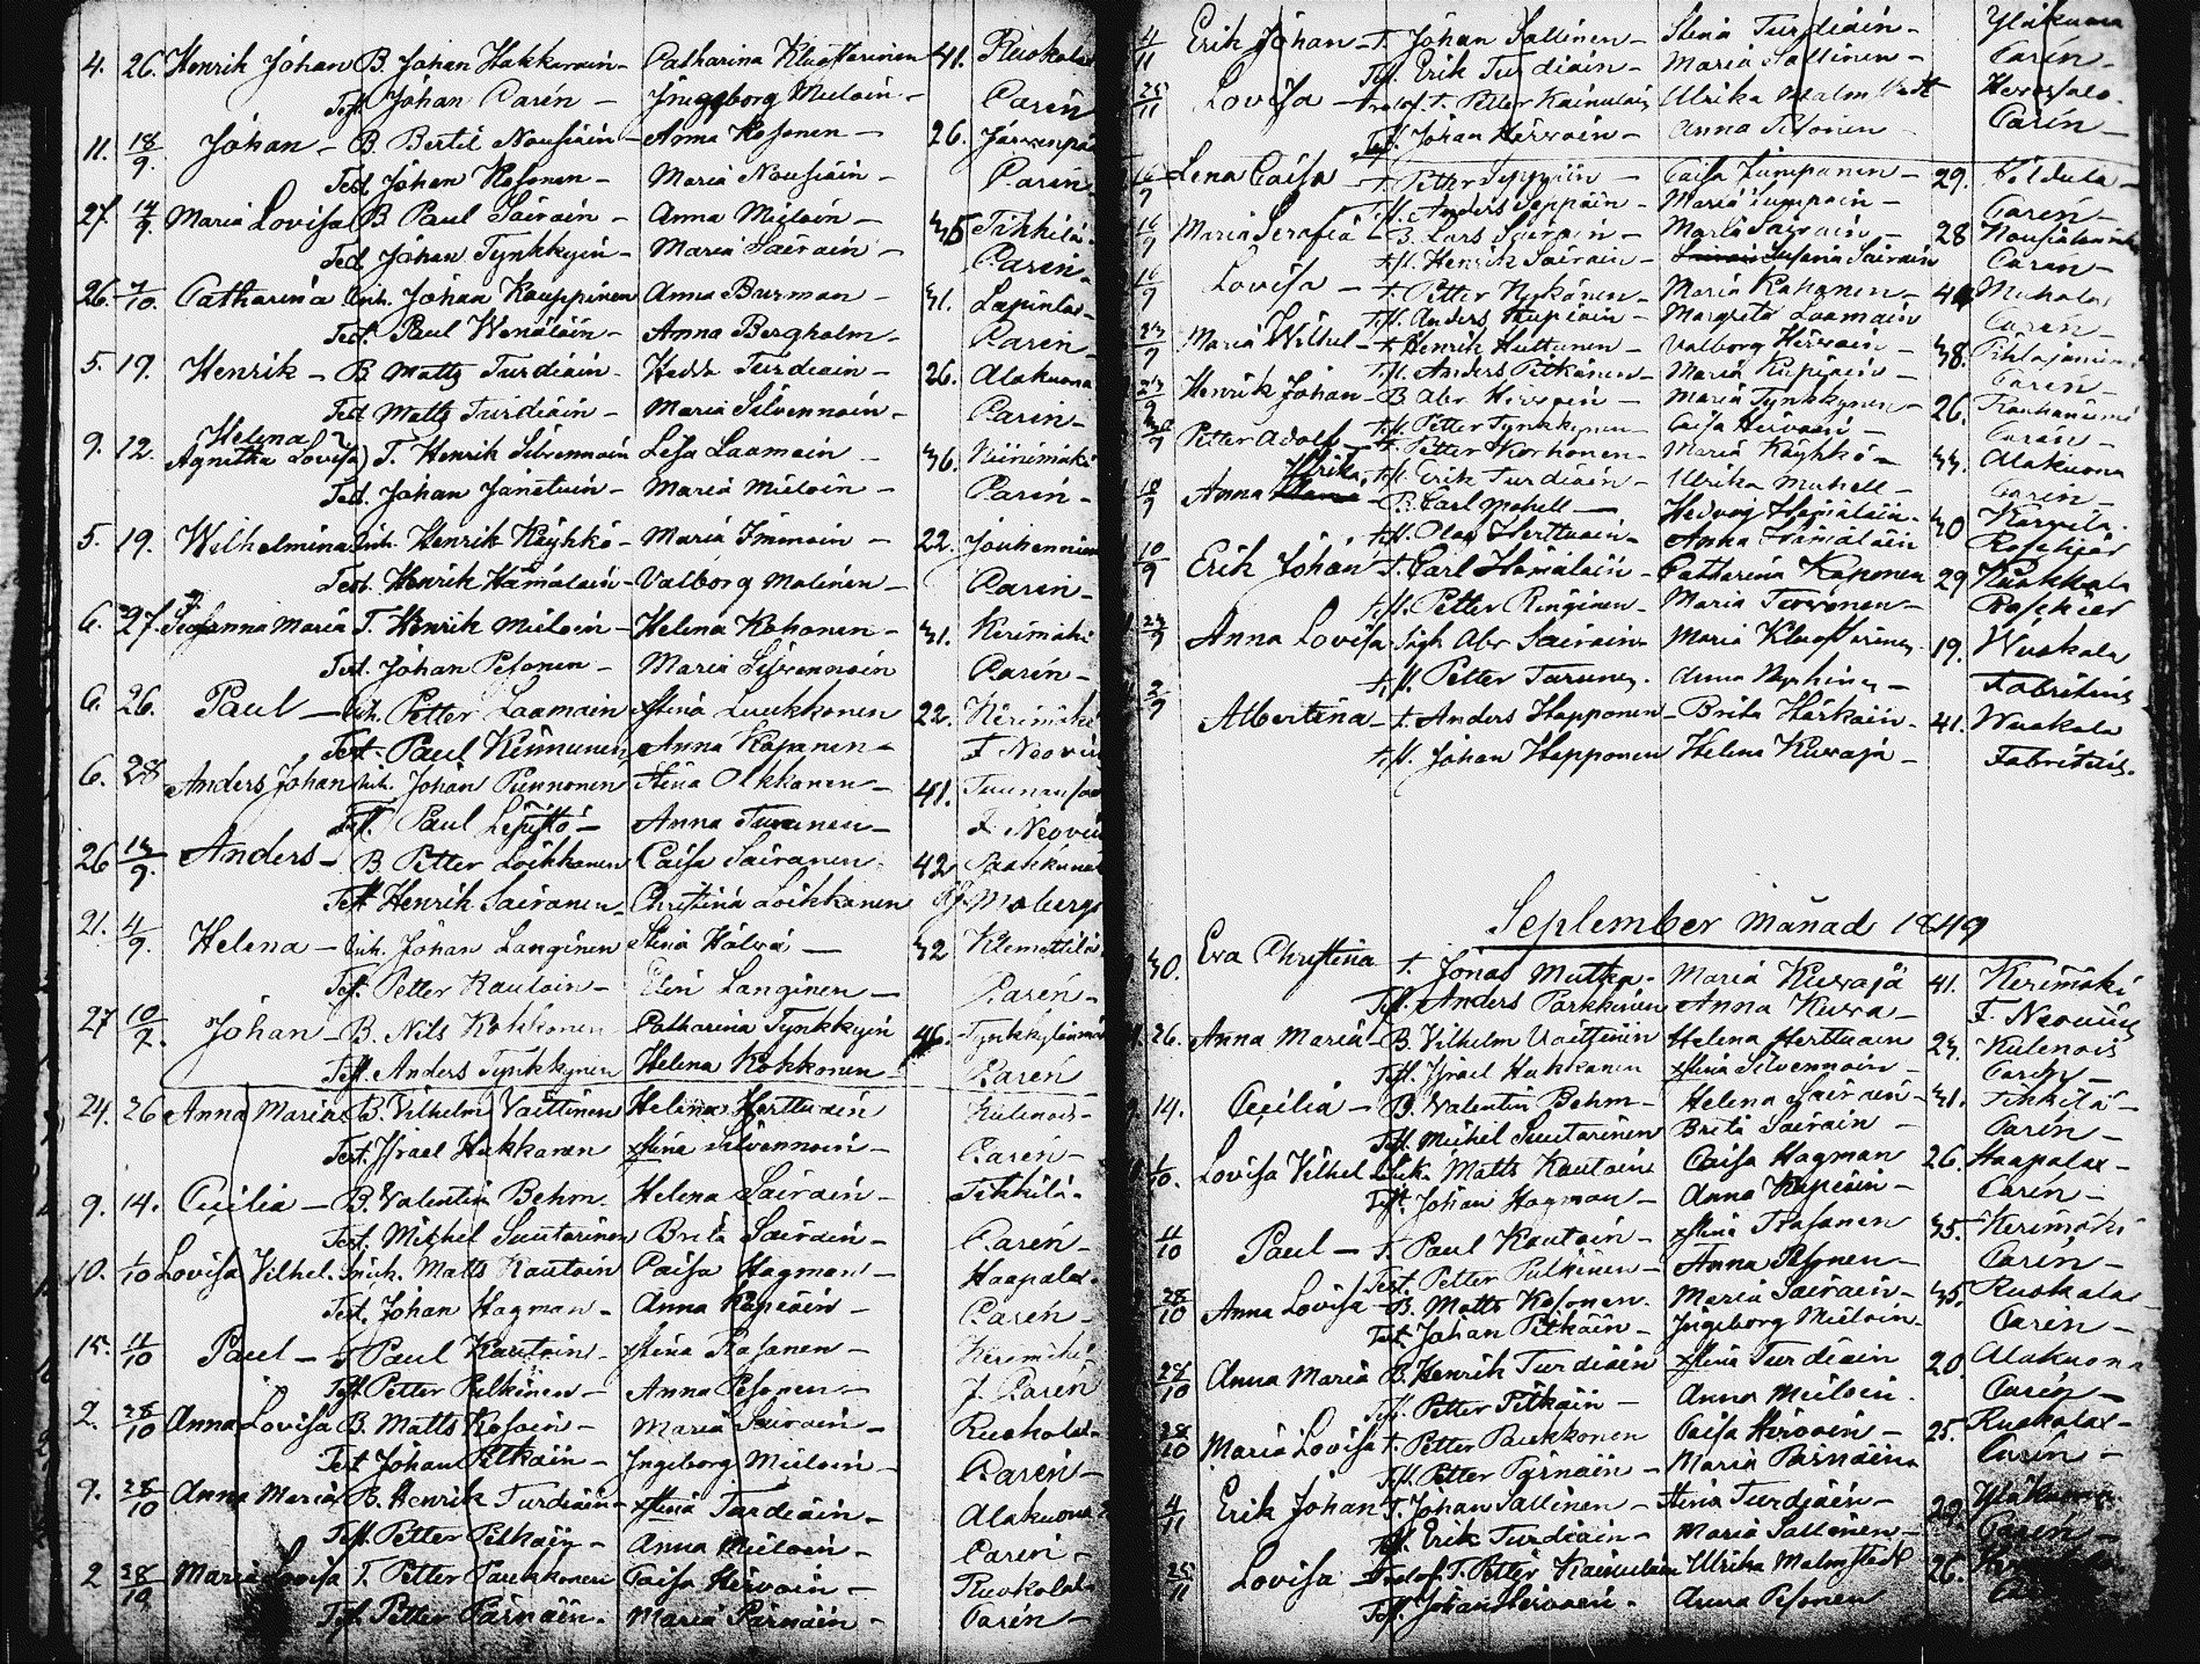 4. 26. Henrik Johan B. Johan Hakkarain - Catharina Klaftarinen 41.
Test. Johan Carén - Ingeborg Mieloin - Carén
11. 18/9. Johan - B. Bertil Nousiain - Anna Kosonen - 26.
Test. Johan Kosonen - Maria Nousiain - Carén
27. 14/9. Maria Lovisa B. Paul Sairain - Anna Mieloin - 35 Tikkilä.
Test. Johan Tynkkyin - Maria Sairain - Carén
26. 7/10. Catharina Inh. Johan Kauppinen Anna Burman - 31.
Test. Paul Wenäläin - Anna Bergholm - Carén
5. 19. Henrik - B. Matts Turdiain - Hedda Turdiain - 26. Alakuona
Test. Matts Turdiain - Maria Silvennoin - Carén -
Helena
9. 12. Agnetha Lovisa T. Henrik Silvennoin Lisa Laamain - 36. Niinimäki
Test. Johan Jänetuin - Maria Mieloin - Carén -
5. 19. Wilhelmina Inh. Henrik Käyhkö - Maria Immoin - 22.
Test. Henrik Hämäläin - Valborg Malinen - Carén -
6. 27. Susanna Maria T. Henrik Mieloin - Helena Kohonen - 31. Kerimäki
Test. Johan Pesonen - Maria Silvennoin Carén -
6. 26. Paul - Inh. Petter Laamain Stina Luukkonen 22. Kerimäki
Test. Paul Kinnunen Anna Kapanen -
6. 28 Anders Johan Inh. Johan Punnonen Stina Olkkonen - 41.
Test. Paul Anna Turunen -
26 13/9. Anders - B. Petter Loikkanen Caisa Sairanen. 42
Test. Henrik Sairanen - Christina Loikkanen
21. 4/9. Helena - Inh. Johan Langinen Stina Hälvä - 32
Test. Petter Rautain - Elin Langinen - Carén -
27 10/9. Johan - B. Nils Kokkonen Catharina Tynkkyin 46.
Test. Anders Tynkkynen Helena Kokkonen - Carén
24. 26 Anna Maria B. Vilhelm Vaittinen Helena Herttuain Kulenois -
Test. Israel Hakkanen Stina Silvennoin - Carén -
9. 14. Cecilia - B. Valentin Behm. Helena Sairain - Tikkilä.
Test. Michel Suutarinen Brita Sairain - Carén -
10. 1/10 Lovisa Vilhel. Inh. Matts Rautain Caisa Hagman - Haapalax.
Test. Johan Hagman - Anna Kupiain - Carén -
15. 11/10 Paul - T. Paul Rautain - Stina Rasanen - Kerimäki
Test. Petter Pulkinen - Anna Pesonen - Carén
2. 28/10 Anna Lovisa B. Matts Kosoin - Maria Sairain - Ruokolax -
Test. Johan Pitkäin - Ingeborg Mieloin - Carén -
9. 28/10 Anna Maria B. Henrik Turdiain - Stina Turdiain - Alakuona
Test. Petter Pitkäin - Anna Mieloin - Carén -
2 28/10 Maria Lovisa T. Petter Paukkonen Caisa Hirvoin - Ruokolax
Test. Petter Pärnäin - Maria Pärnäin - Carén -
4/11 Erik Johan - T. Johan Sallinen - Stina Turdiain - Yläkuona
Test. Erik Turdiain - Maria Sallinen - Carén -
25/11 Lovisa - T. Petter Kainulain Ulrika Malmstedt
Test. Johan Hirvoin - Anna Pesonen - Carén -
Lena Caisa - T. Petter Seppäin - Caisa Zumpanen - 29.
Test. Anders Seppäin - Maria Zumpain - Carén -
16/9 Maria Serafia - B. Lars Sairain - Maria Sairain - 28
Test. Henrik Sairain - Susanna Sairain Carén -
16/9 Lovisa - T. Petter Nykänen - Maria Kapanen -
Test. Anders Kupiain - Margreta Laamain Carén -
23/9 Maria Wilhel - T. Henrik Huttunen - Valborg Hirvoin - 38. Pihlajaniemi
Test. Anders Pitkänen - Maria Kupiain - Carén -
23/9 Henrik Johan - B. Abr Hirvoin - Maria Tynkkynen - 26. Rauhaniemi
Test. Petter Tynkkynen - Caisa Hirvoin - Carén -
Petter Adolf - T. Petter Korhonen - Maria Käyhkö - 33. Alakuona
Test. Erik Turdiain - Ulrika Mahell - Carén -
Ulrika
18/9 Anna - B. Carl Mahell - Hedvig Hämäläin. 30
Test. Olag Herttuain - Anna Hämäläin Roschier
10/9 Erik Johan T. Carl Hämäläin - Catharina Kaponen 29 Kuokkala
Test. Petter Ringinen - Maria Tervonen - Roschier
23/9 Anna Lovisa Abr Sairain - Maria Klaftarinen - 19. Wuokala
Test. Petter Turunen. Anna - Fabritius
2/9 Albertina - T. Anders Happonen - Brita Härkäin - 41. Wuokala
Test. Johan Happonen Helena Kuvaja - Fabritius.
September månad 1849
30. Eva Christina T. Jonas Mutka - Maria Kuvaja 41. Kerimäki
Test. Anders Parkkinen Anna Kuva - F. Neovius
26. Anna Maria - B. Vilhelm Vaittinin Helena Herttuain 23. Kulenois
Test. Israel Hakkanen Stina Silvennoin - Carén -
14. Cecilia - B. Valentin Behm - Helena Sairain - 31. Tikkilä -
Test. Michel Suutarinen Brita Sairain - Carén -
1/10. Lovisa Vilhel Inh. Matts Rautain Caisa Hagman 26. Haapalax -
Test. Johan Hagman - Anna Kupiain - Carén -
11/10 Paul - T. Paul Rautain - Stina Rasanen 35. Kerimäki
Test. Petter Pulkinen - Anna Pesonen - Carén -
28/10 Anna Lovisa - B. Matts Kosonen. Maria Sairain - 35. Ruokolax
Test. Johan Pitkäin - Ingeborg Mieloin - Carén -
28/10 Anna Maria B. Henrik Turdiain Stina Turdiain 20. Alakuona
Test. Petter Pitkäin - Anna Mieloin. Carén -
28/10 Maria Lovisa T. Petter Paukkonen Caisa Hirvoin - 25. Ruokolax -
Test. Petter Pärnäin - Maria Pärnäin Carén -
4/11 Erik Johan T. Johan Sallinen - Stina Turdiain - 29. Yläkuona
Test. Erik Turdiain - Maria Sallinen - Carén -
25/11 Lovisa - T. Petter Kainulain Ulrika Malmstedt 26.
Test. Johan Hirvoin - Anna Pesonen